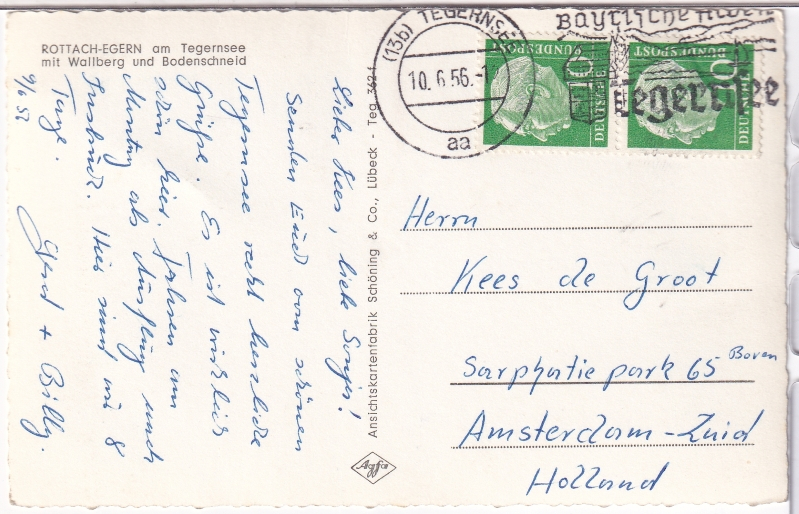 ROTTACH-EGERN am Tegernsee
mit Wallberg und Bodenschneid
Lieber Kees, liebe Sonja!
Senden Euch vom schönen
Tegernsee recht herzliche
Grüße. Es ist wirklich
schön hier. Fahren am
Montag als Ausflug nach
Insbruck. Hier sind wir 8
Tage.
Gerd + Billy.
9/6 52
Ansichtskartenfabrik Schöning & Co., Lübeck - Teg. 362
Agfa
(13b) TEGERNSE
10.6.56.-1
aa
Bayrische Alpen
Tegernsee
DEUTSCHE BUNDESPOST
10
DEUTSCHE BUNDESPOST
10
Herrn
Kees de Groot
Sarphatie park 65 Boven
Amsterdam-Zuid
Holland